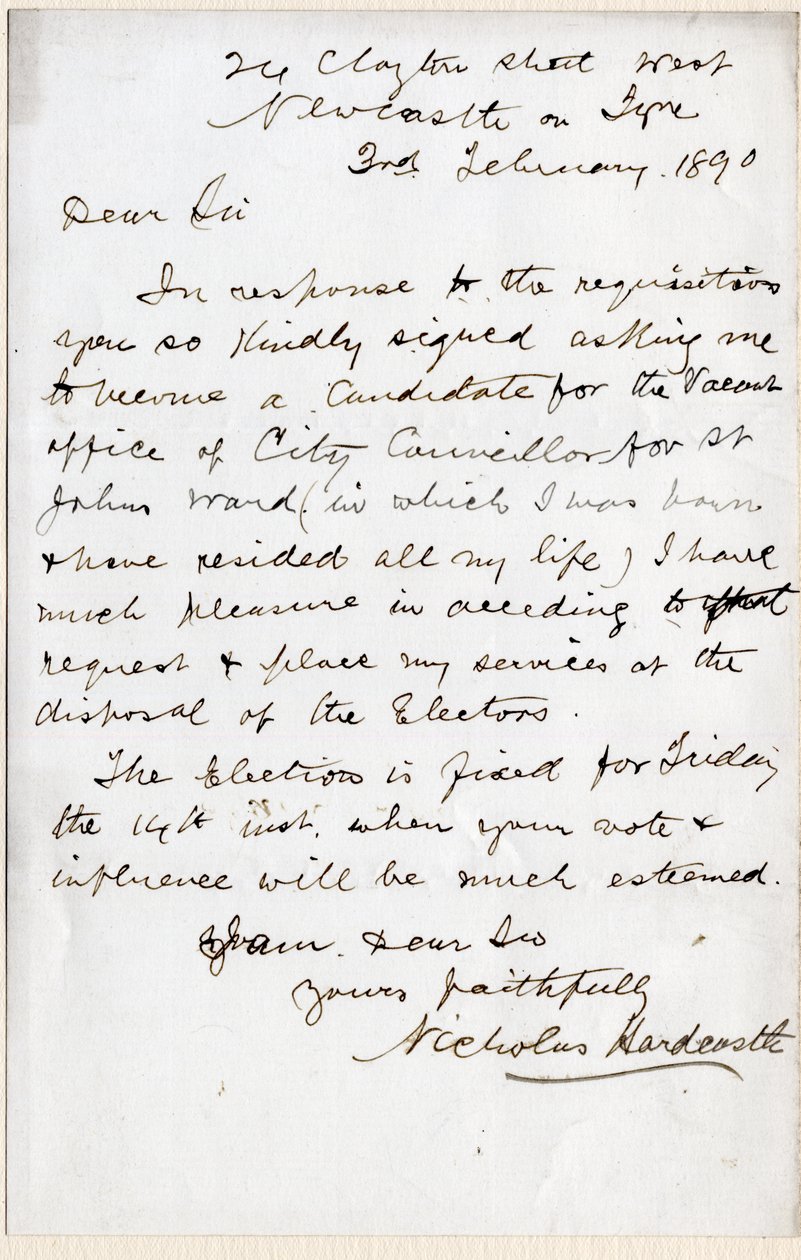 24 Clayton Street West
Newcastle on Tyne
3rd. February. 1890
Dear Sir
In response to the requisition
you so Kindly signed asking me
to become a Candidate for the Vacant
office of City Councillor for St
Johns Ward (in which I was born
& have resided all my life) I have
much pleasure in acceding to that
request & place my services at the
disposal of the Electors.
The Election is fixed for Friday
the 14th inst. when your vote &
influence will be much esteemed.
I am. Dear Sir
Yours faithfully
Nicholas Hardcastle